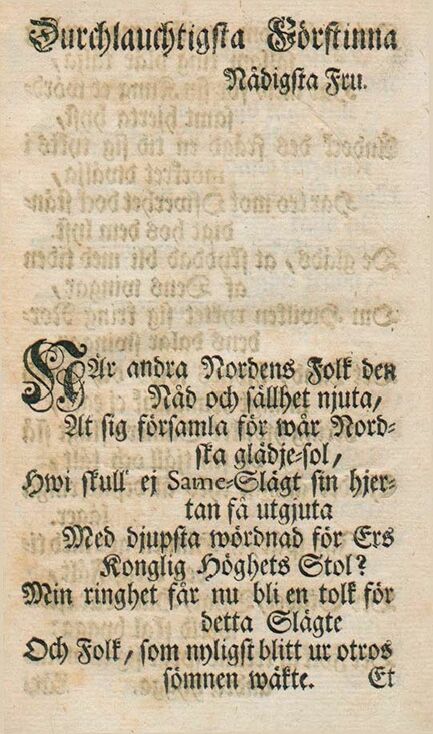 Durchlauchtigsta Förstinna
Nådigsta Fru.
När andra Nordens Folk den
Nåd och sällhet njuta,
At sig församla för wår Nord-
ska glädje-sol,
Hwi skull ej Same-Slägt sin hjer-
tan få utgjuta
Med djupsta wördnad för Ers
Konglig Höghets Stol?
Min ringhet får nu bli en tolk för
detta Slägte
Och Folk, som nyligst blitt ur otros
sömnen wäkte. Et